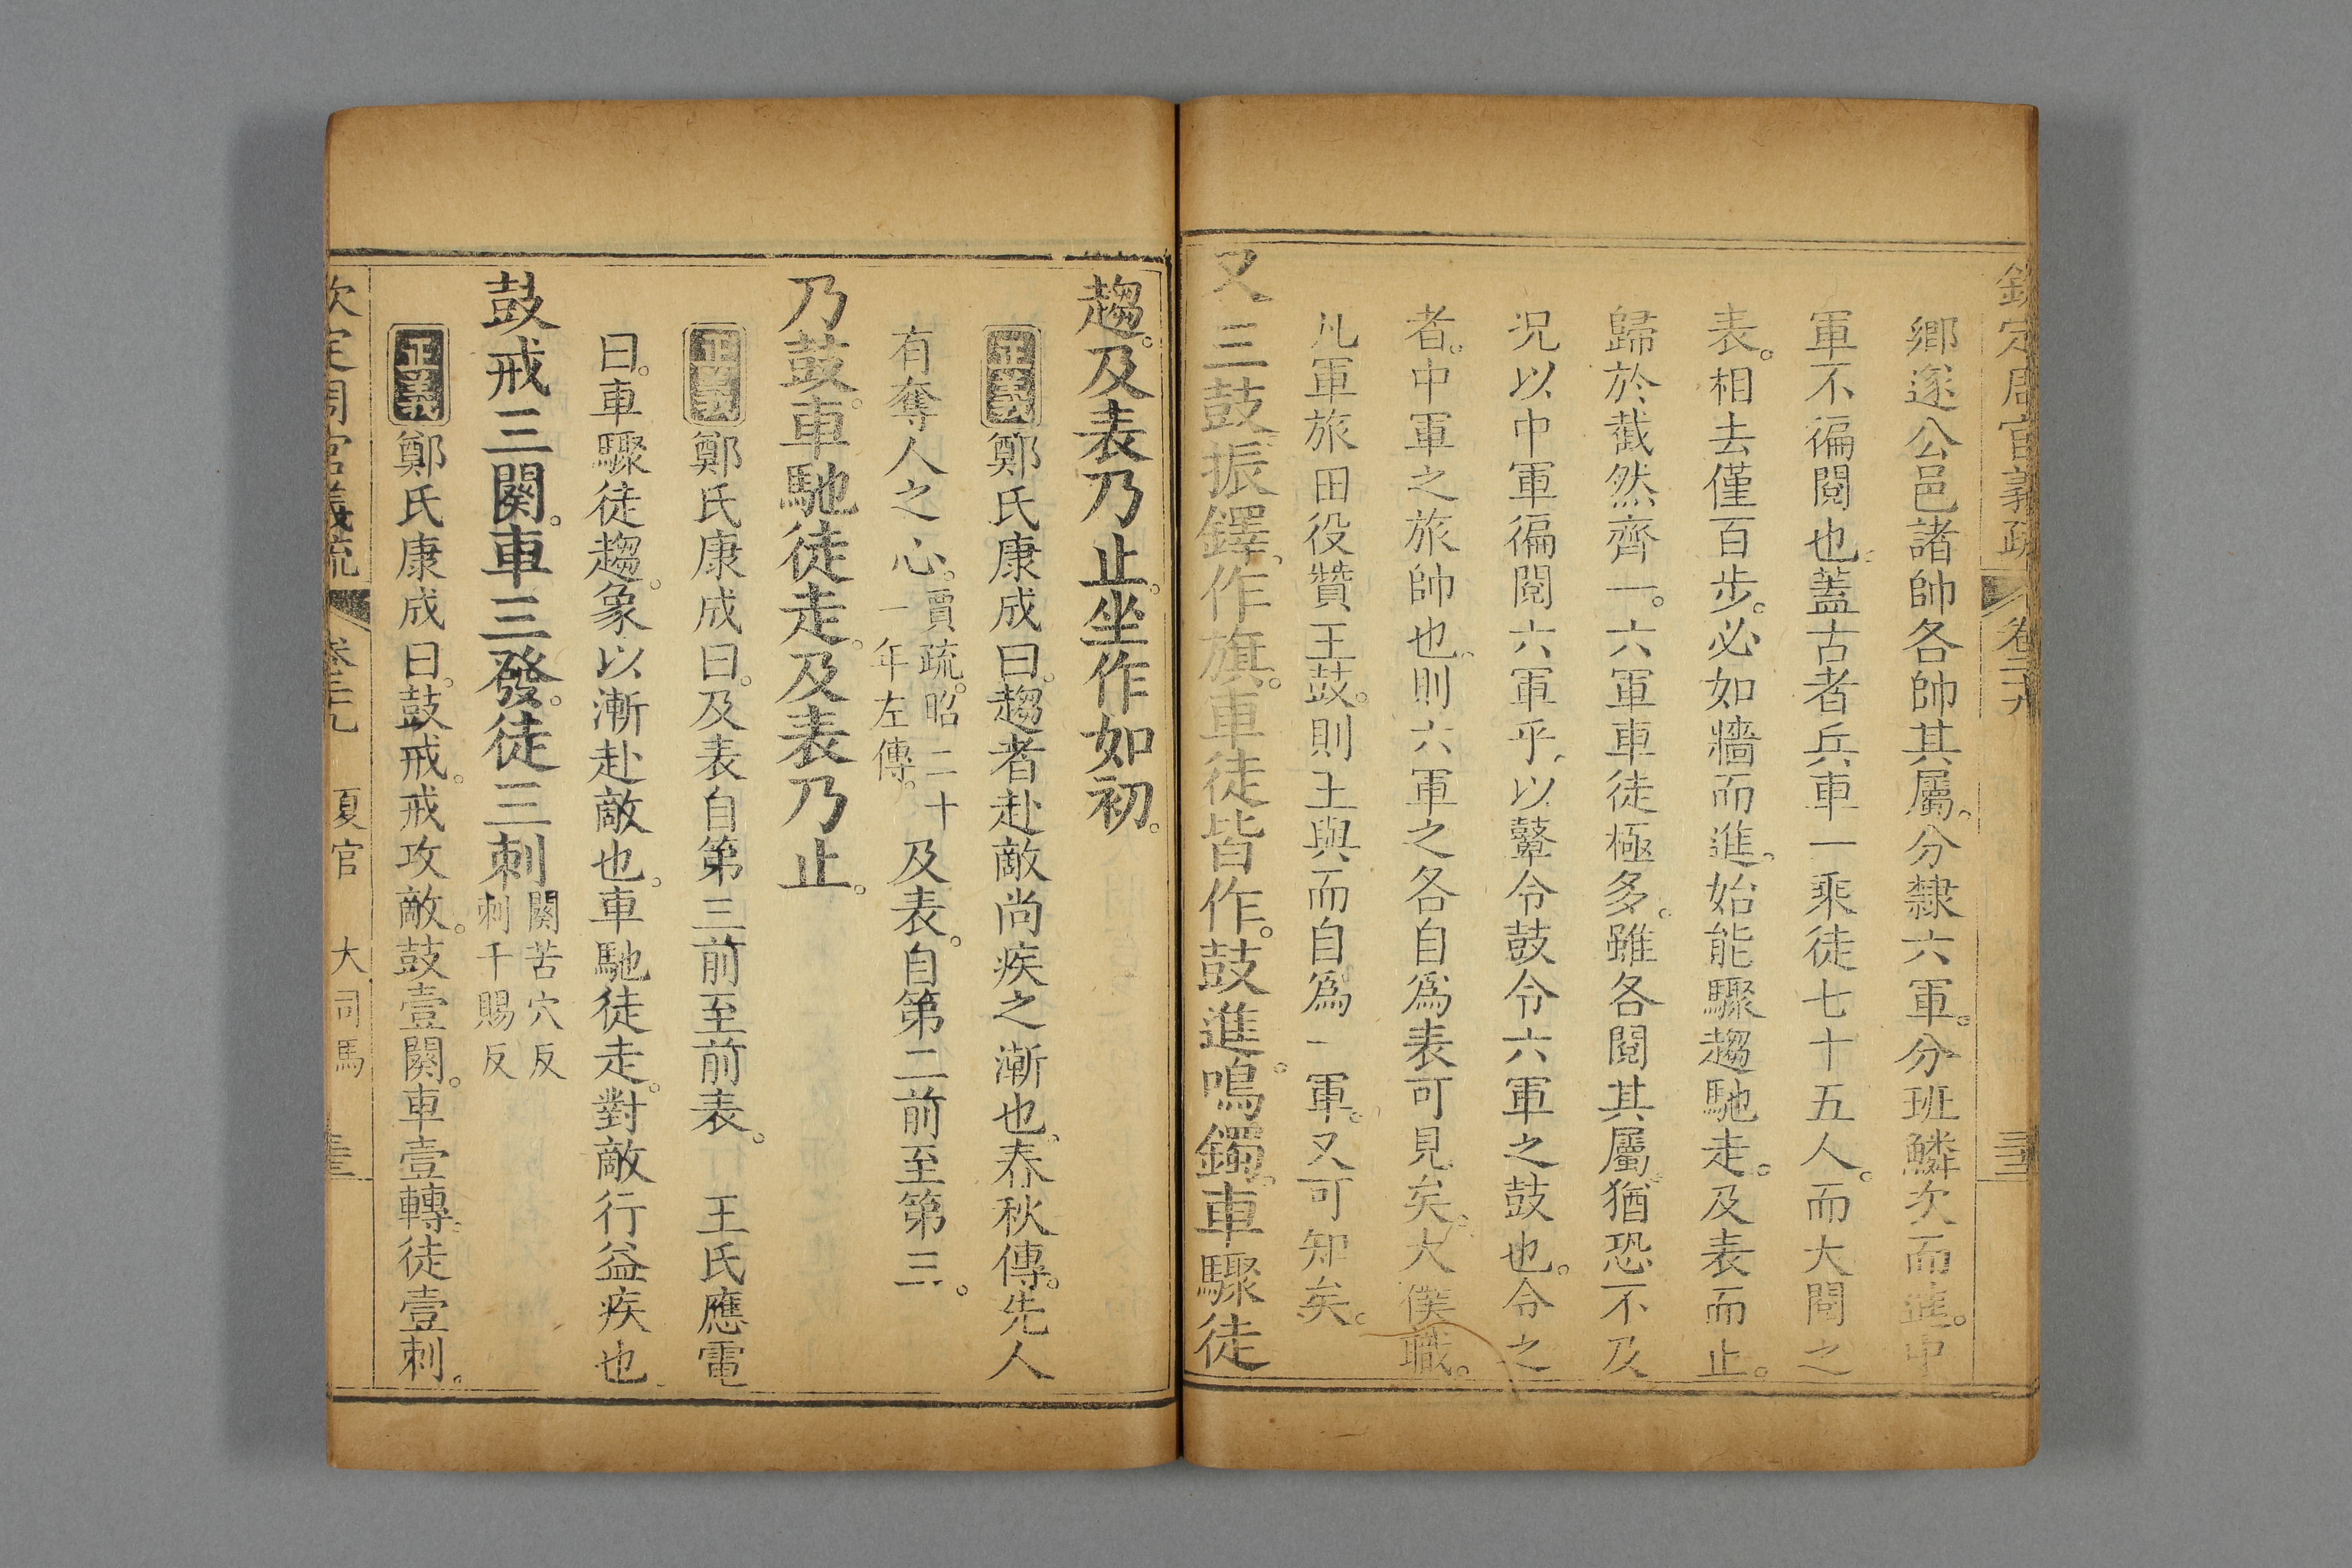 欽定周官義疏 卷二十九
鄉遂公邑諸帥各帥其屬。分隸六軍。分班鱗次而進。中
軍不徧閱也。蓋古者兵車一乘徒七十五人。而大閱之
表。相去僅百步。必如牆而進。始能驟趨馳走。及表而止。
歸於截然齊一。六軍車徒極多。雖各閱其屬。猶恐不及
況以中軍徧閱六軍乎。以鼙令鼓令六軍之鼓也。令之
者。中軍之旅帥也。則六軍之各自爲表可見矣。大僕職。
凡軍旅田役贊王鼓。則王與而自爲一軍。又可知矣。
又三鼓。振鐸。作旗。車徒皆作。鼓進。鳴鐲。車驟徒
趨。及表乃止。坐作如初。
正義鄭氏康成曰。趨者赴敵尚疾之漸也。春秋傳。先人
有奪人之心。賈疏。昭二十一年左傳。及表。自第二前至第三。
乃鼓。車馳徒走。及表乃止。
正義鄭氏康成曰。及表自第三前至前表。 王氏應電
曰。車驟徒趨。象以漸赴敵也。車馳徒走。對敵行益疾也
鼓戒三闋。車三發。徒三刺闋苦穴反刺千賜反
正義鄭氏康成曰。鼓戒。戒攻敵。鼓壹闋。車壹轉。徒壹刺。
欽定周官義疏 卷二十九 夏官 大司馬